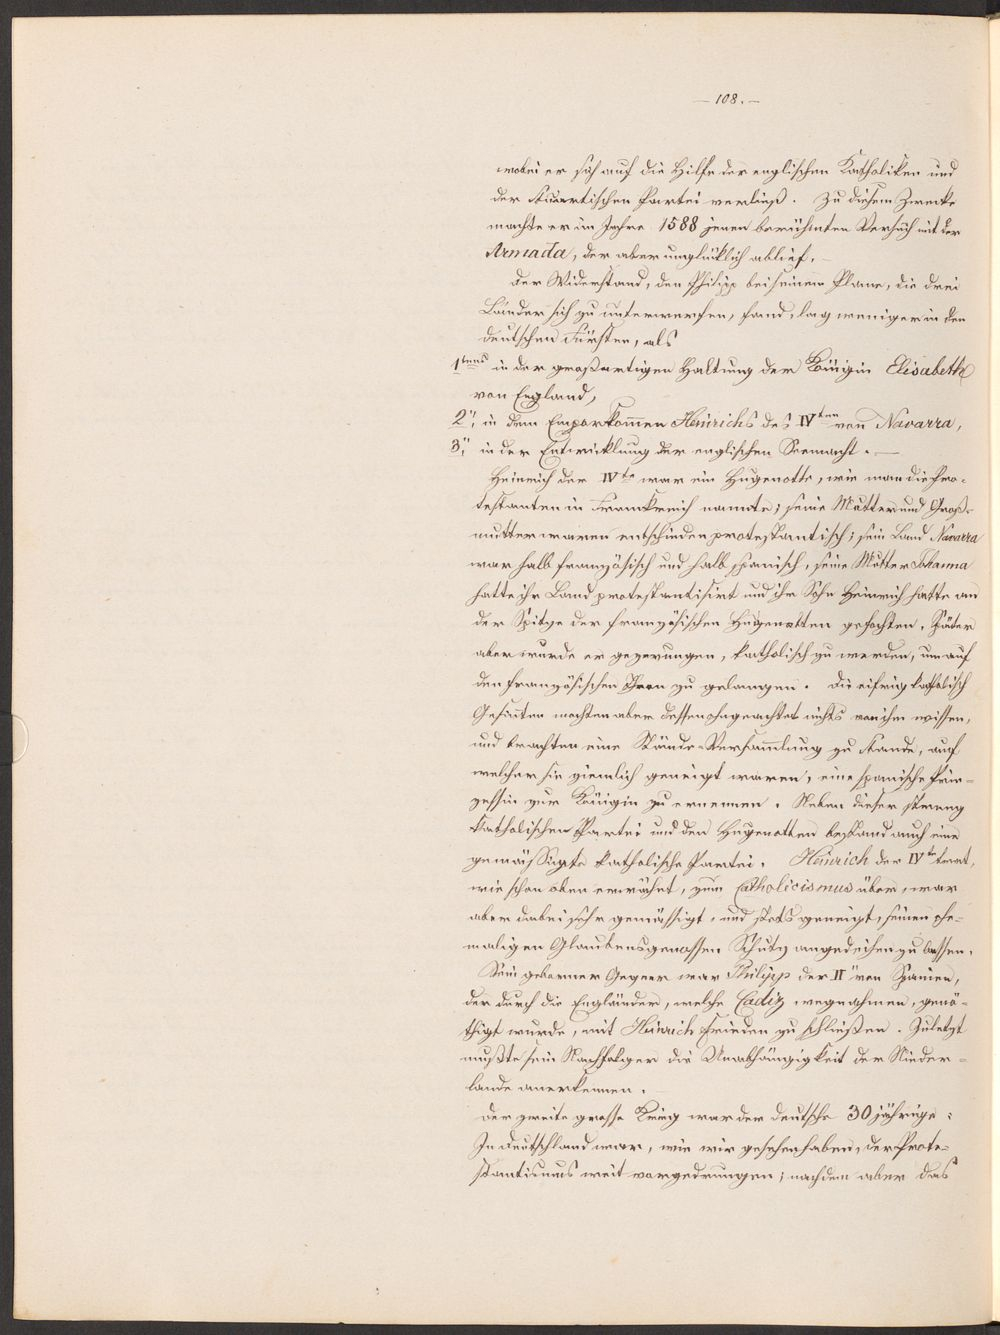 — 108. —
wobei er sich auf die Hilfe der englischen Katholiken und
der Stuartischen Partei verließ. Zu diesem Zwecke
machte er im Jahre 1588 jenen berühmten Versuch mit der
Armada, der aber unglücklich ablief. —
Der Widerstand, den Philipp bei seinem Plane, die drei
Länder sich zu unterwerfen, fand, lag weniger in den
deutschen Fürsten, als
1tens in der großartigen Haltung der Königin Elisabeth
von England,
2", in dem Emporkom̄en Heinrichs des IVten von Navarra,
3", in der Entwicklung der englischen Seemacht. —
Heinrich der IVte war ein Hugenotte, wie man die Pro-
testanten in Frankreich nannte; seine Mutter und Groß-
mutter waren entschieden protestantisch; sein Land Navarra
war halb französisch und halb spanisch, seine Mutter Johanna
hatte ihr Land protestantisirt und ihr Sohn Heinrich hatte an
der Spitze der französischen Hugenotten gefochten. Später
aber wurde er gezwungen, katholisch zu werden, um auf
den französischen Thron zu gelangen. Die eifrig katholisch
Gesin̄ten mochten aber dessenohngeachtet nichts von ihm wissen,
und brachten eine Stände-Versam̄lung zu Stande, auf
welcher sie ziemlich geneigt waren, eine spanische Prin-
zessin zur Königin zu ernennen. Neben dieser streng
katholischen Partei und den Hugenotten bestand auch eine
gemässigte katholische Partei. Heinrich der IVte trat,
wie schon oben erwähnt, zum Catholicismus über, war
aber dabei sehr gemässigt, und stets geneigt, seinen ehe-
maligen Glaubensgenossen Schutz angedeihen zu lassen.
Sein geborner Gegner war Philipp der II" von Spanien,
der durch die Engländer, welche Cadiz wegnahmen, genö-
thigt wurde, mit Heinrich Frieden zu schließen. Zuletzt
mußte sein Nachfolger die Unabhängigkeit der Nieder-
lande anerkennen.
Der zweite grosse Krieg war der deutsche 30 jährige:
In Deutschland war, wie wir gesehen haben, der Prote-
stantismus weit vorgedrungen; nachdem aber das